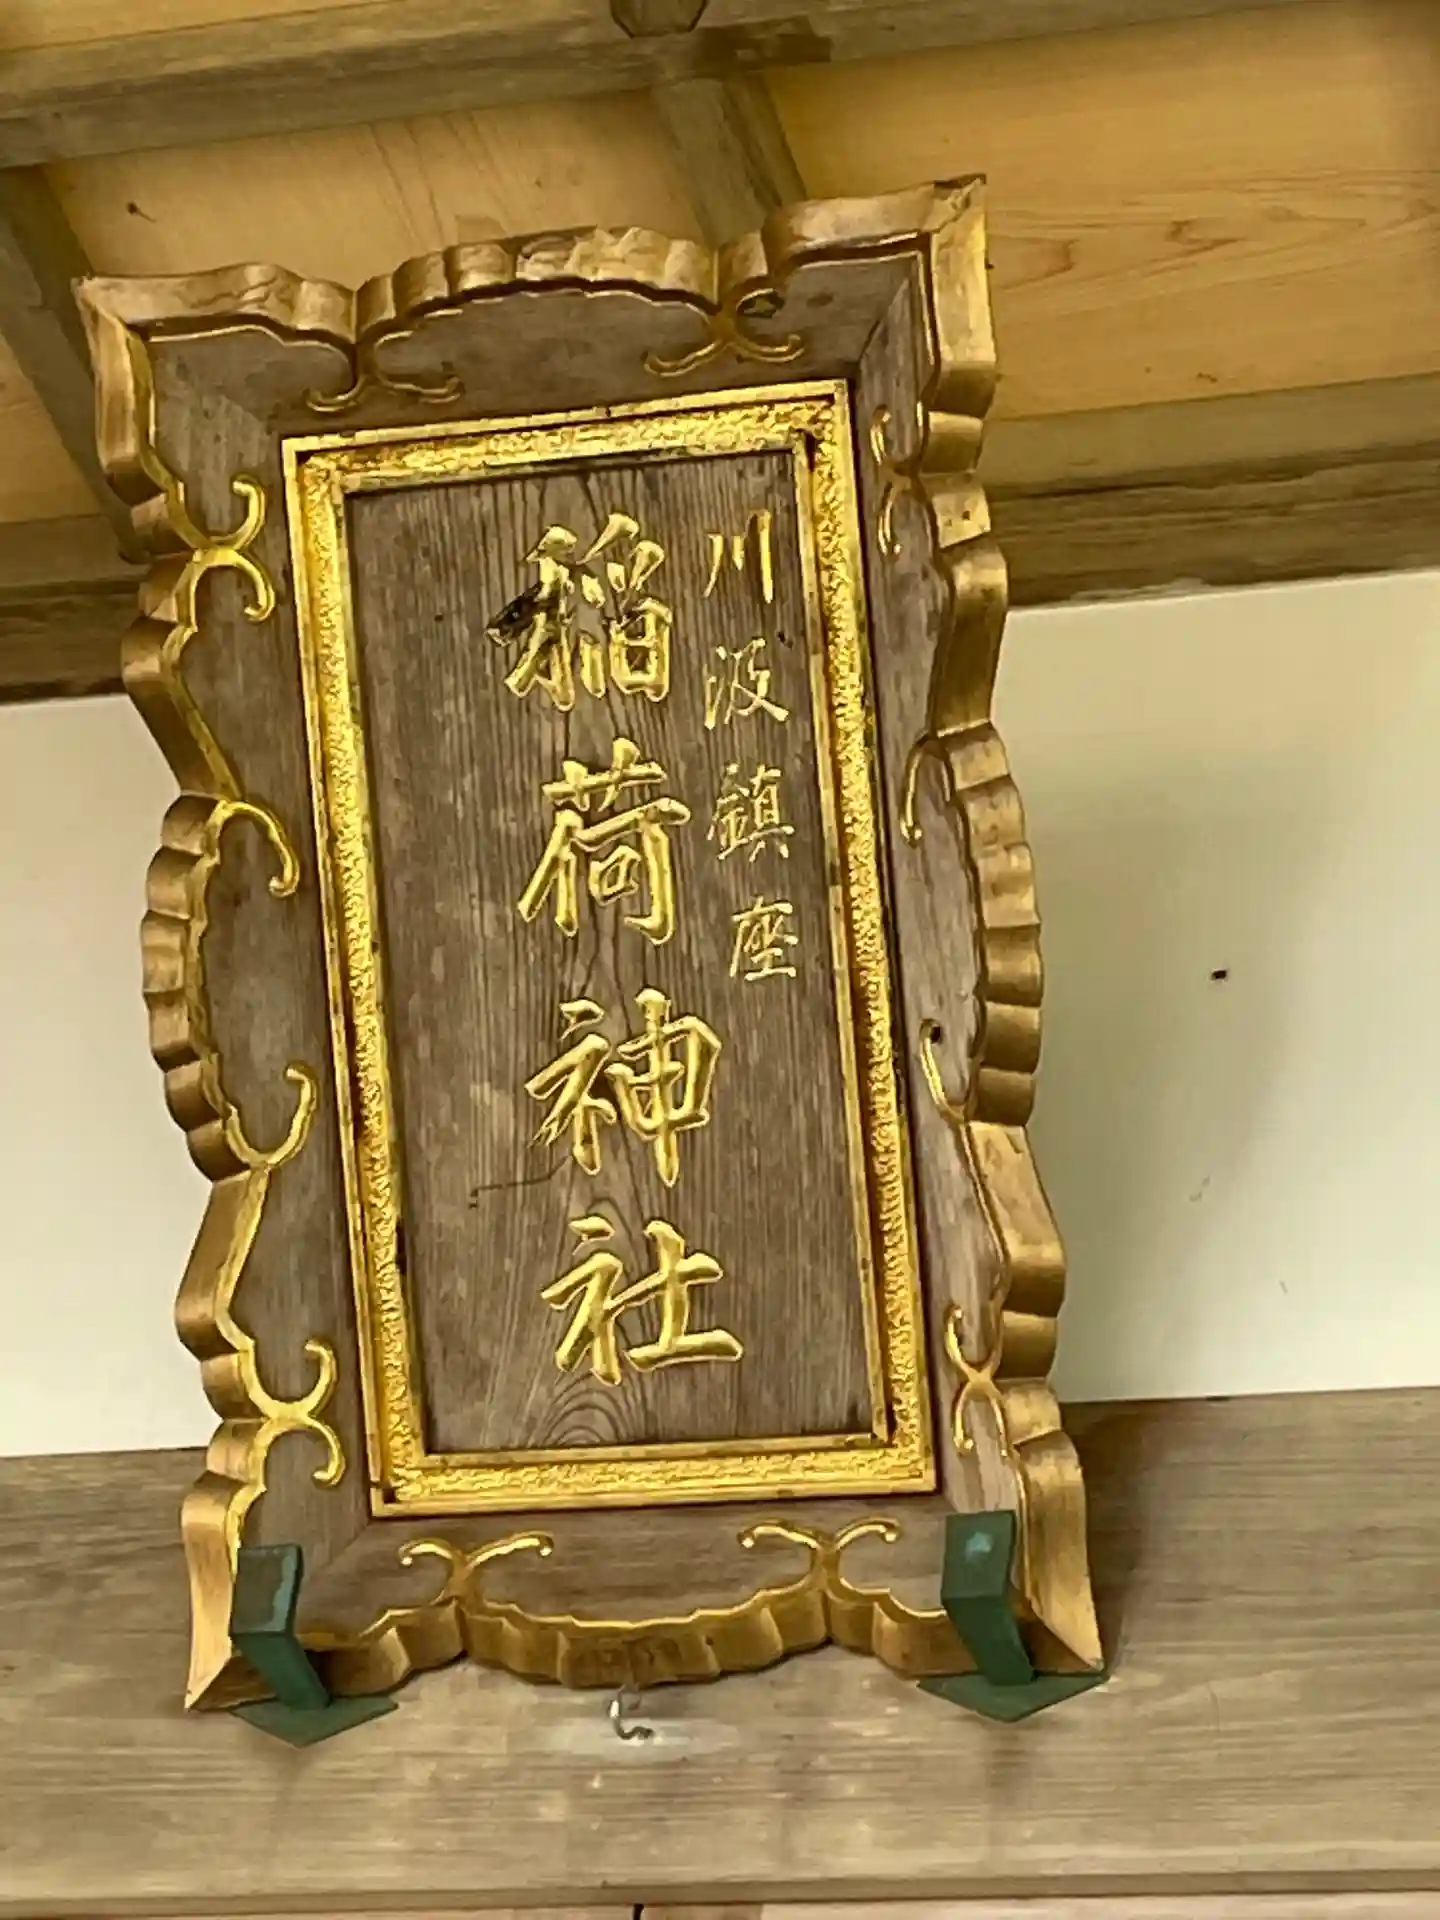 川汲鎮座
稲荷神社